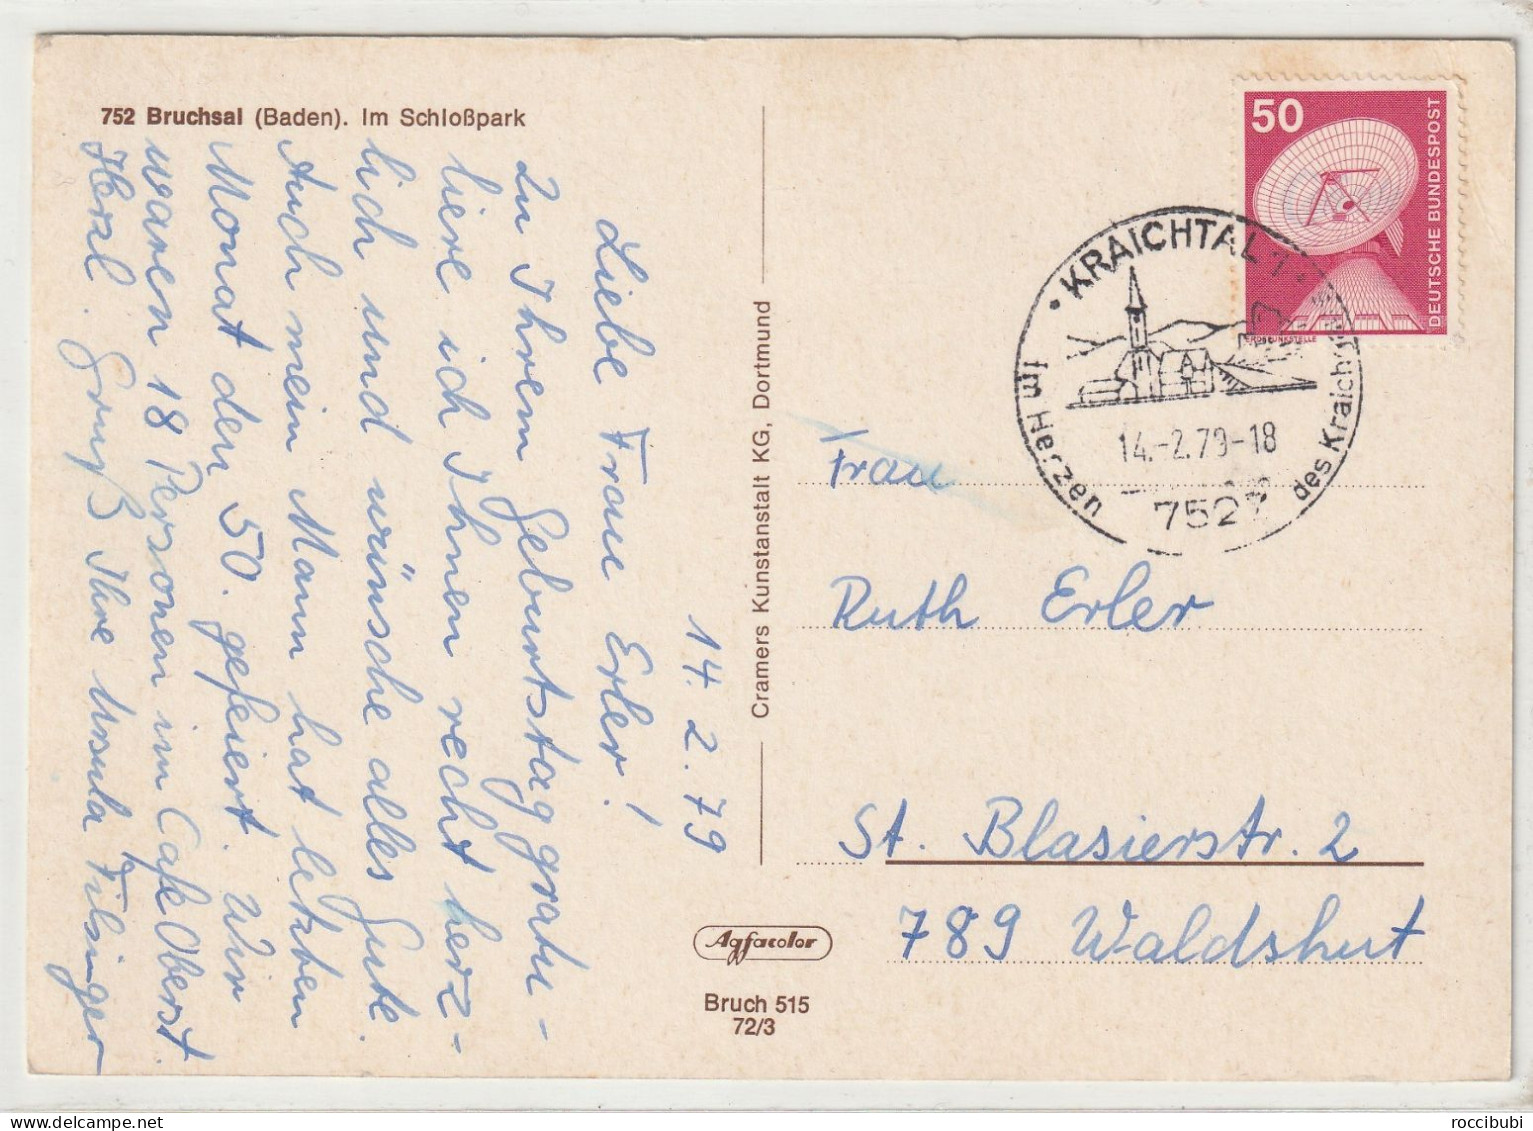 752 Bruchsal (Baden). Im Schloßpark
14. 2. 79
Liebe Frau Erler!
Zu Ihrem Geburtstag gratu-
liere ich Ihnen recht herz-
lich und wünsche alles Gute.
Auch mein Mann hat letzten
Monat den 50. gefeiert. Wir
waren 18 Personen im Cafe Oberst.
Herzl. Gruß Ihre Ursula Filsinger
Cramers Kunstanstalt KG, Dortmund
Agfacolor
Bruch 515
72/3
50
DEUTSCHE BUNDESPOST
ERDEFUNKSTELLE
KRAICHTAL 1
Im Herzen
des Kraichgaus
14.-2.79-18
7527
Frau
Ruth Erler
St. Blasierstr. 2
789 Waldshut
roccibubi